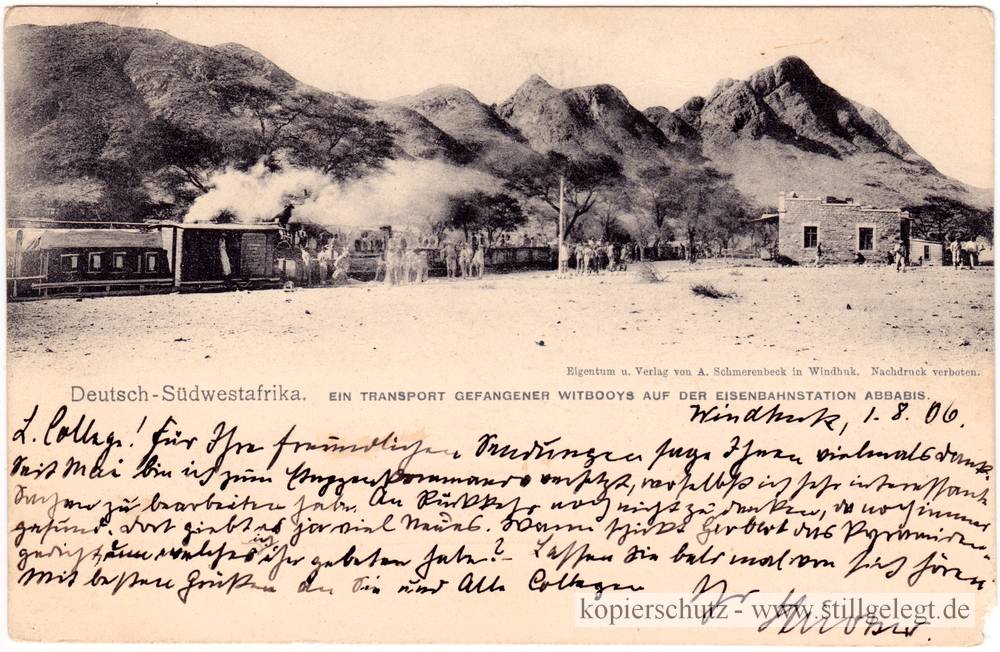 Eigentum u. Verlag von A. Schmerenbeck in Windhuk. Nachdruck verboten.
Deutsch-Südwestafrika. EIN TRANSPORT GEFANGENER WITBOOYS AUF DER EISENBAHNSTATION ABBABIS.
Windhuk, 1.8.06.
L. College! Für Ihre freundlichen Sendungen sage Ihnen vielmals dank.
Seit Mai bin ich zum Etappenkommando versetzt, woselbst ich sehr interessante
Sachen zu bearbeiten habe. An Rückkehr noch nicht zu denken, da noch immer
gesund. Dort giebt es ja viel Neues. Wann schickt das
gericht, um welches ich ihn gebeten habe? – Lassen Sie bald mal von sich hören
Mit besten Grüßen an Sie und Alle Collegen
Ihr
kopierschutz - www.stillgelegt.de